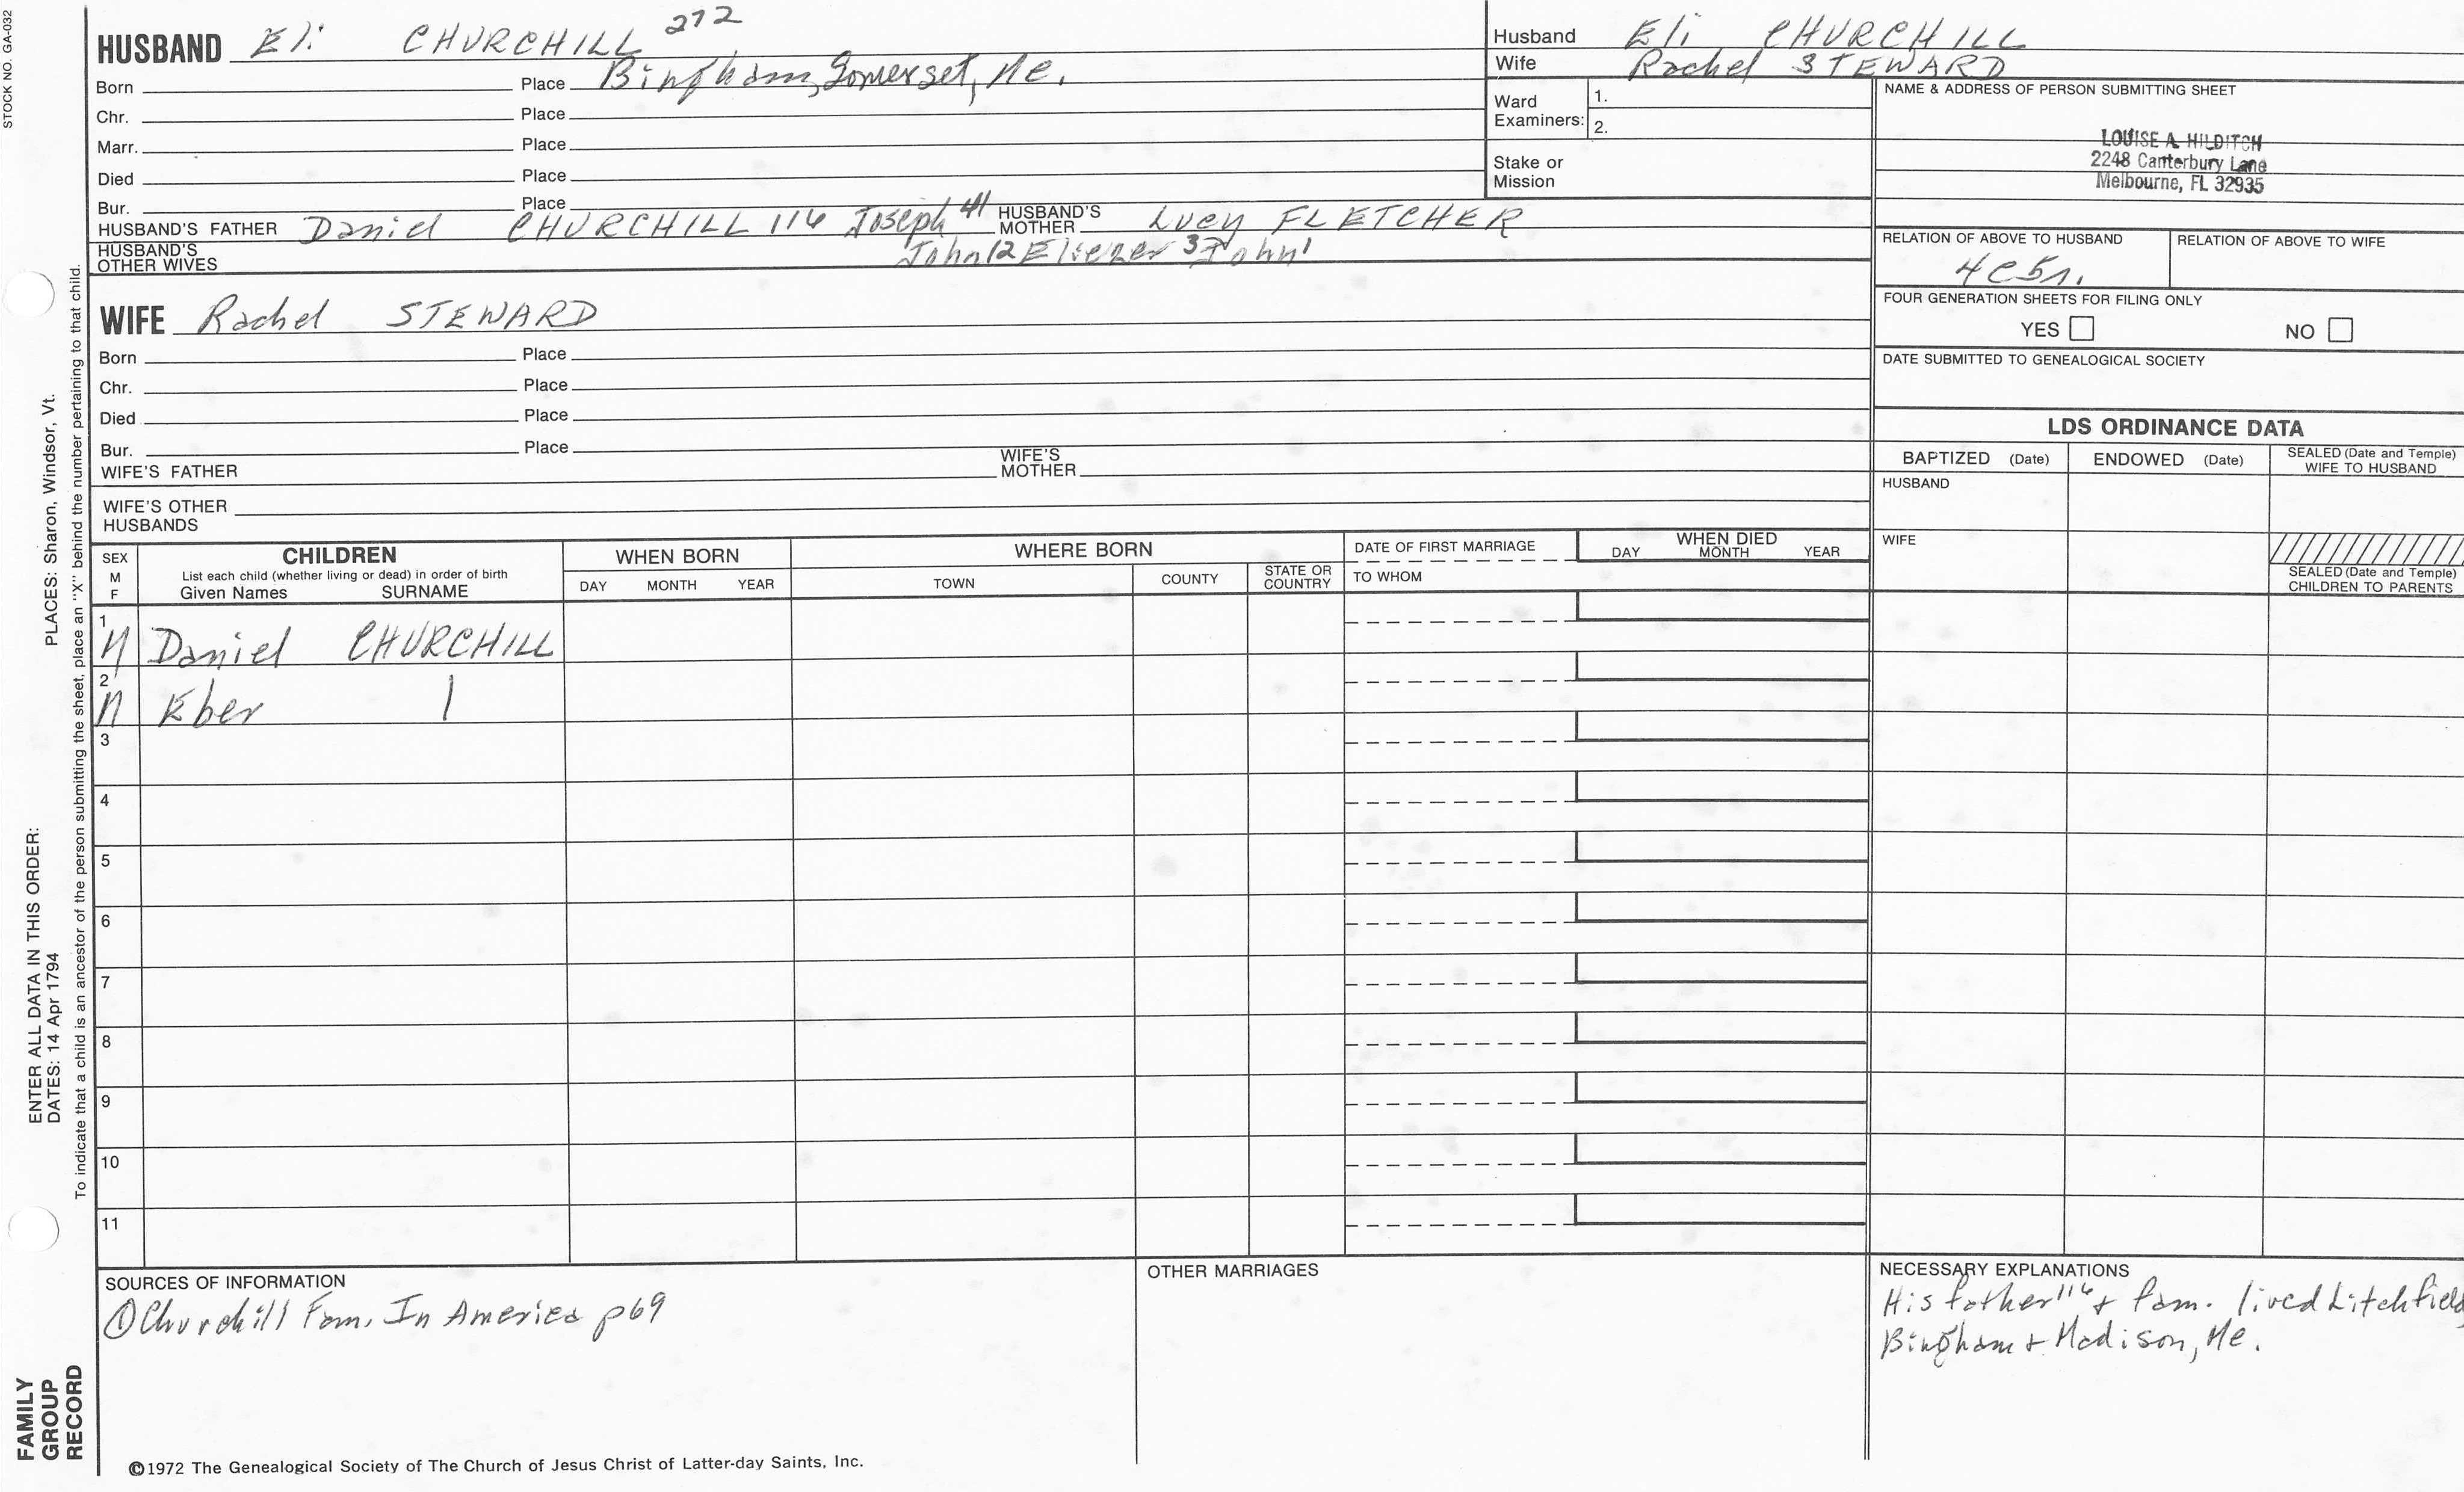 STOCK NO. GA-032
HUSBAND Eli CHURCHILL 272
Born Place Bingham, Somerset, Me.
Chr. Place
Marr. Place
Died Place
Bur. Place
HUSBAND'S FATHER Daniel CHURCHILL 116 Joseph 41 HUSBAND'S MOTHER Lucy FLETCHER
HUSBAND'S OTHER WIVES John 12 Eliezer 3 John 1
WIFE Rachel STEWARD
Born Place
Chr. Place
Died Place
Bur. Place
WIFE'S FATHER WIFE'S MOTHER
WIFE'S OTHER HUSBANDS
Husband Eli CHURCHILL
Wife Rachel STEWARD
Ward Examiners: 1.
2.
Stake or Mission
NAME & ADDRESS OF PERSON SUBMITTING SHEET
LOUISE A. HILDITCH
2248 Canterbury Lane
Melbourne, FL 32935
RELATION OF ABOVE TO HUSBAND RELATION OF ABOVE TO WIFE
4C5r.
FOUR GENERATION SHEETS FOR FILING ONLY
YES NO
DATE SUBMITTED TO GENEALOGICAL SOCIETY
LDS ORDINANCE DATA
BAPTIZED (Date) ENDOWED (Date) SEALED (Date and Temple) WIFE TO HUSBAND
HUSBAND
WIFE
SEALED (Date and Temple) CHILDREN TO PARENTS
SEX M F
CHILDREN
List each child (whether living or dead) in order of birth
Given Names SURNAME
WHEN BORN
DAY MONTH YEAR
WHERE BORN
TOWN COUNTY STATE OR COUNTRY
DATE OF FIRST MARRIAGE
TO WHOM
WHEN DIED
DAY MONTH YEAR
1 M Daniel CHURCHILL
2 M Eber |
3
4
5
6
7
8
9
10
11
SOURCES OF INFORMATION
① Churchill Fam. In America p69
OTHER MARRIAGES
NECESSARY EXPLANATIONS
His father 116 + fam. lived Litchfield
Bingham + Madison, Me.
©1972 The Genealogical Society of The Church of Jesus Christ of Latter-day Saints, Inc.
FAMILY GROUP RECORD
ENTER ALL DATA IN THIS ORDER:
DATES: 14 Apr 1794 PLACES: Sharon, Windsor, Vt.
To indicate that a child is an ancestor of the person submitting the sheet, place an "X" behind the number pertaining to that child.